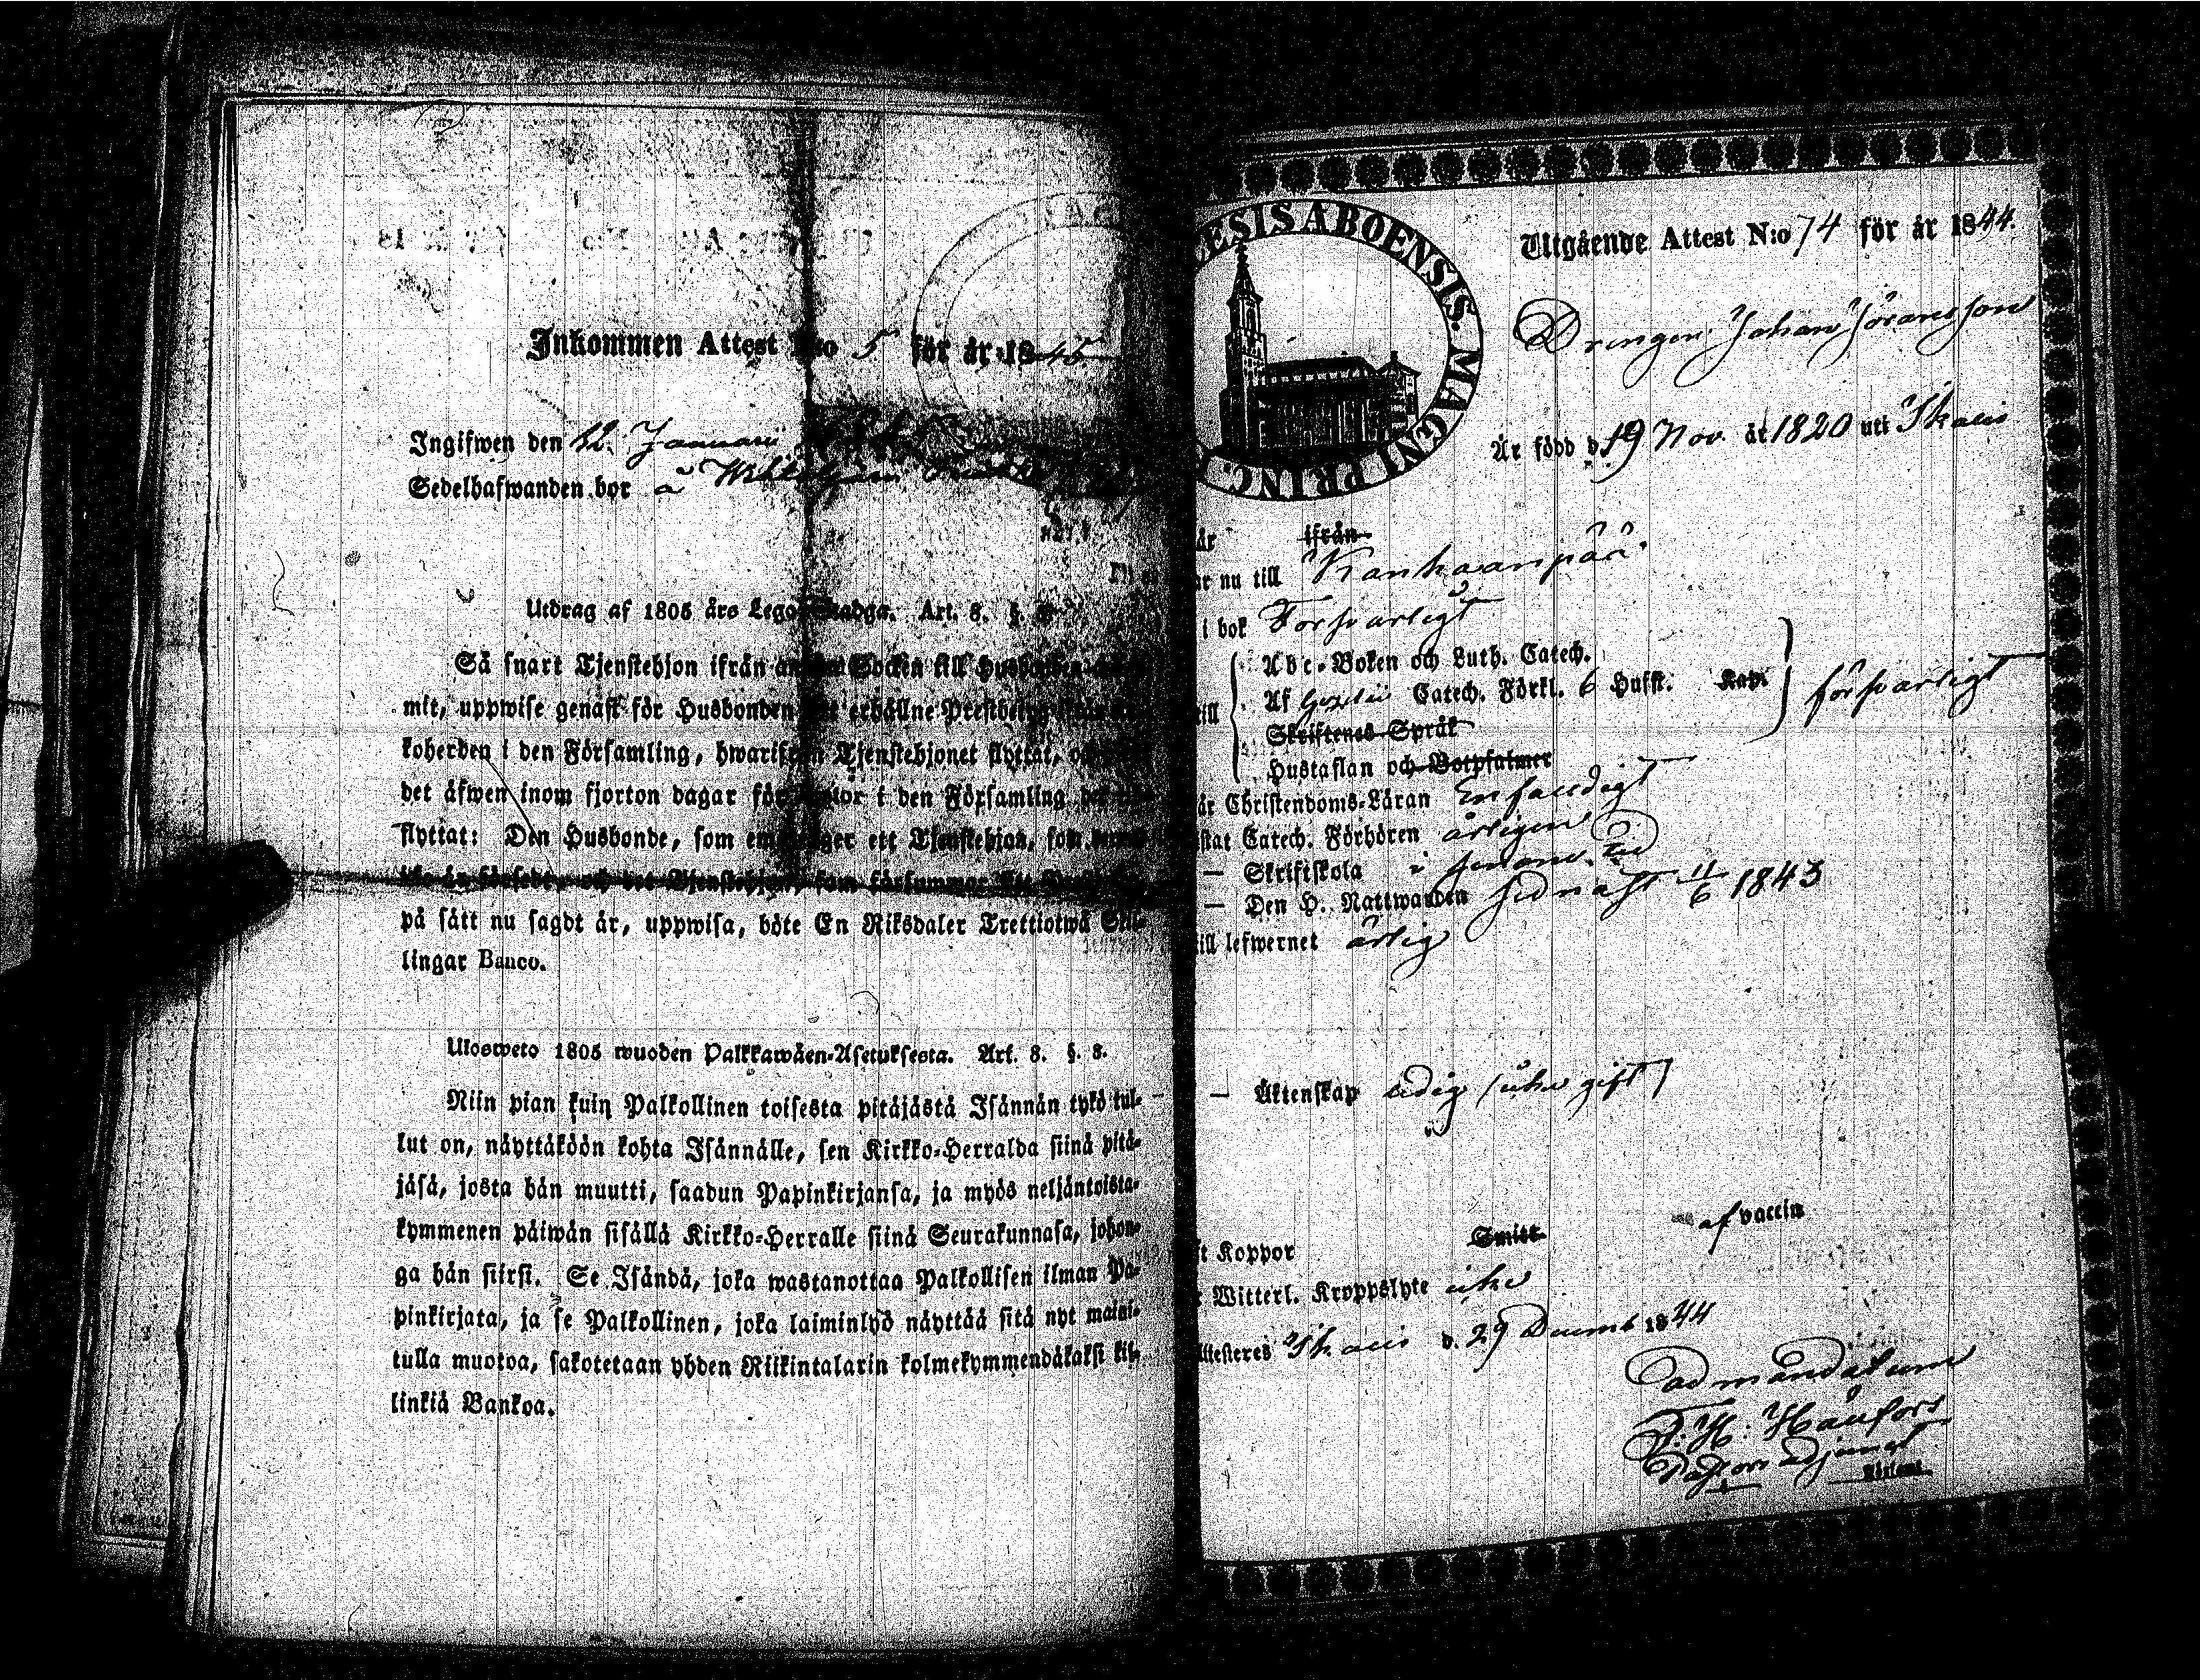 Inkommen Attest N:o 5 för år 1845.
Ingifwen den 12. Januari
Sedelhafwanden bor å
Utdrag af 1805 års Lego-Stadga. Art. 8. §.
Så snart Tjenstehjon ifrån annan Socken till Husbonden
mit, uppwise genast för Husbonden erhållne Prestbetyg
koherden i den Församling, hwarifrån Tjenstehjonet flyttat, och
det äfwen inom fjorton dagar för i den Församling
flyttat: Den Husbonde, som emottager ett Tjenstehjon, som
och det Tjenstehjon, som försummar
på sätt nu sagdt är, uppwisa, böte En Riksdaler Trettiotwå Skil-
lingar Banco.
Ulosweto 1805 wuoden Palkkawäen-Asetuksesta. Art. 8. §. 8.
Niin pian kuin Palkollinen toisesta pitäjästä Isännän tykö tul-
lut on, näyttäköön kohta Isännälle, sen Kirkko-Herralda siinä pitä-
jäsä, josta hän muutti, saadun Papinkirjansa, ja myös neljäntoista-
kymmenen päiwän sisällä Kirkko-Herralle siinä Seurakunnasa, johon-
ga hän siirsi. Se Isändä, joka wastanottaa Palkollisen ilman Pa-
pinkirjata, ja se Palkollinen, joka laiminlyö näyttää sitä nyt maini-
tulla muotoa, sakotetaan yhden Riikintalarin kolmekymmendäkaksi kil-
linkiä Bankoa.
ESIS ABOENSIS. MAGNI PRINC.
Utgående Attest N:o 74 för år 1844.
Drengen Johan Göransson
Är född d. 19 Nov. år 1820 uti Ikalis
är ifrån
ar nu till Kankaanpää
i bok Försvarligt
till
Abc-Boken och Luth. Catech.
Af Gezelii Catech. Förkl. 6 Hufst. Kap. försvarligt
Skriftenes Språk
Hustaflan och Botpsalmer
är Christendoms-Läran Enfaldigt
stat Catech. Förhören årligen
— Skriftskola i
— Den H. Nattwarden sednast 11/6 1843
till lefwernet ärlig
— Äktenskap ledig (icke gift)
ft Koppor Smitt af vaccin
r Witterl. Kroppslyte icke
Attesteres Ikalis d. 29 Decemb 1844
ad mandatum
Pastors adjunct